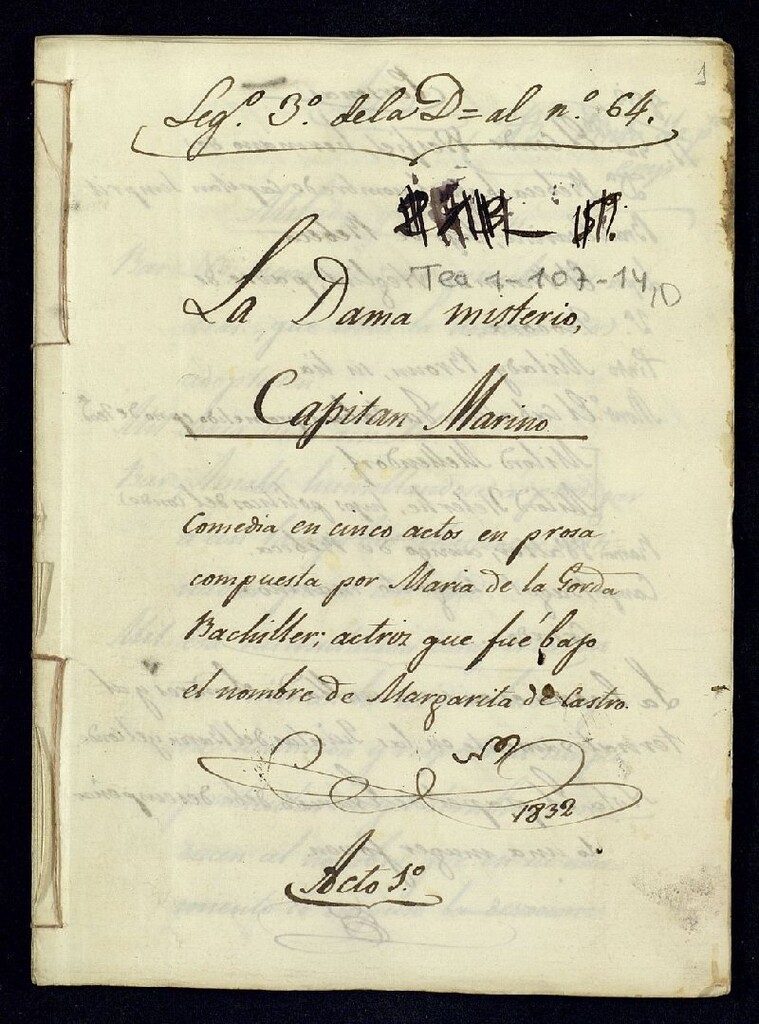 1
Leg.º 3.º de la D= al n.º 64.
Tea 1-107-14,
La Dama misterio,
Capitan Marino
Comedia en cinco actos en prosa
compuesta por Maria de la Gorda
Bachiller; actriz que fué bajo
el nombre de Margarita de Castro.
1832
Acto 1º.